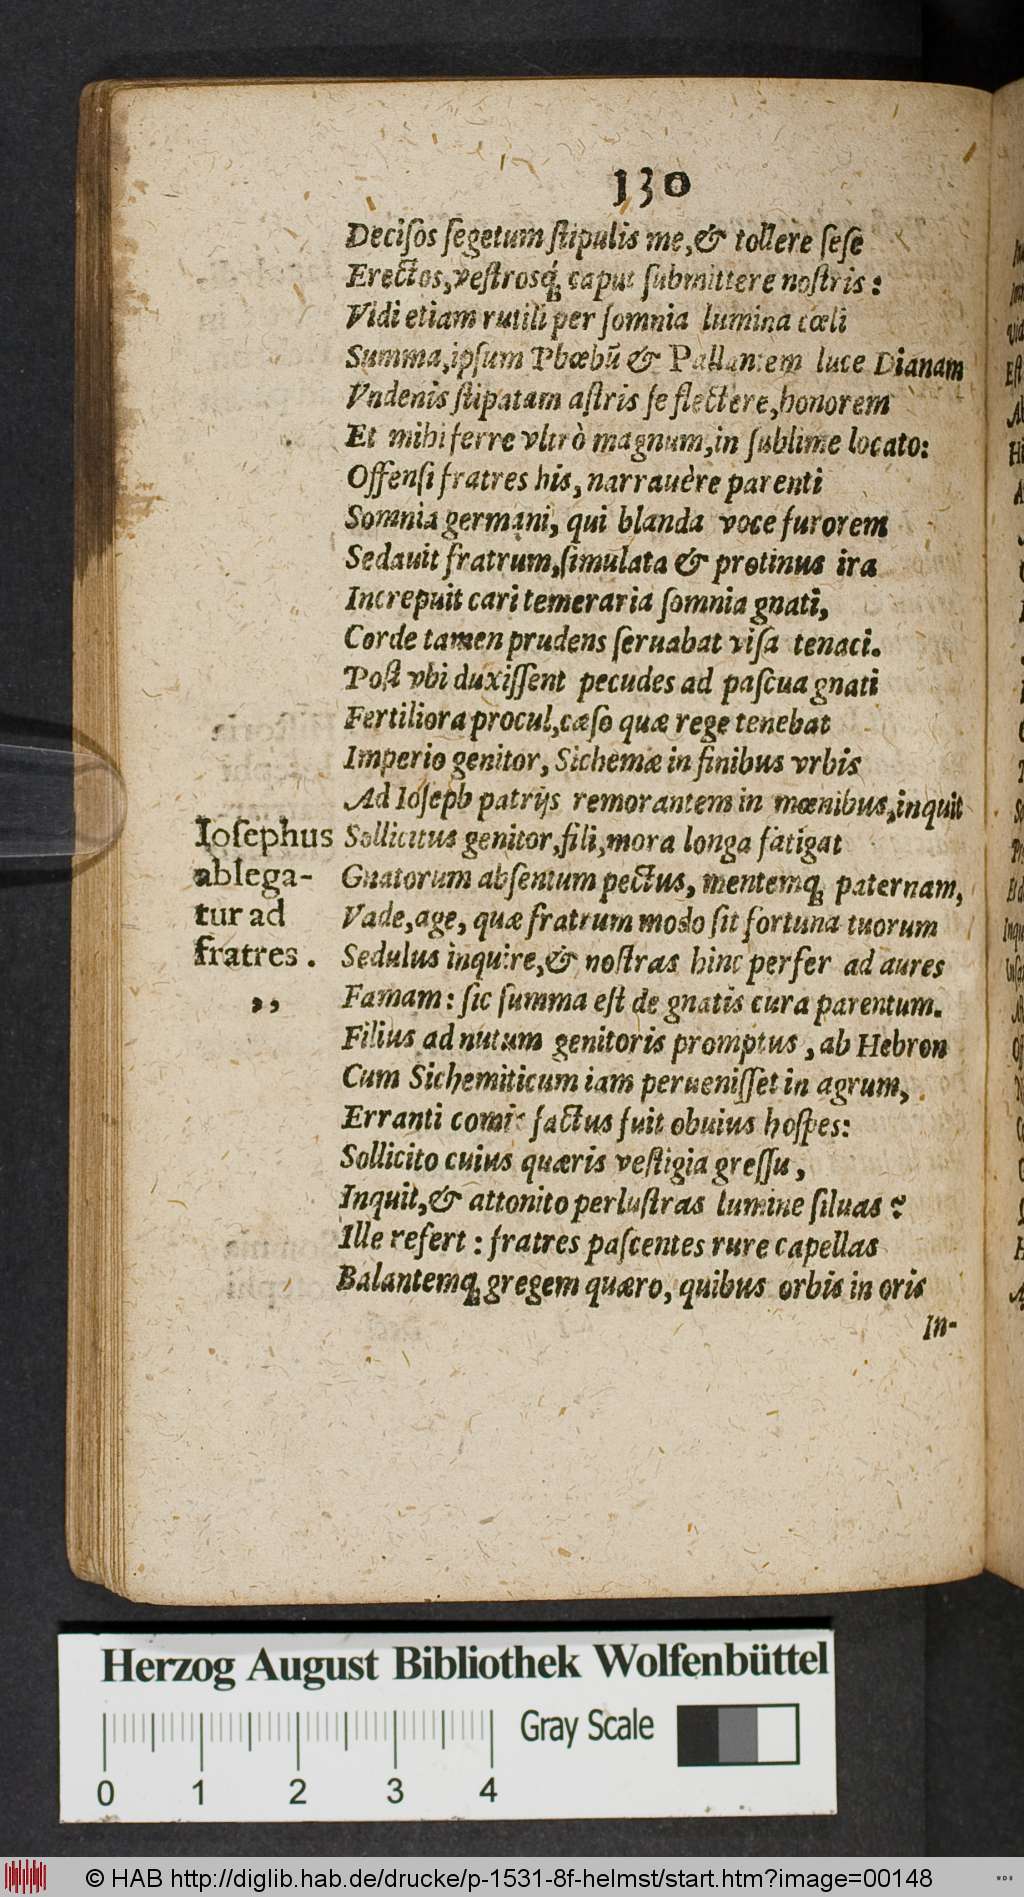 130
Deciſos ſegetum ſtipulis me,& tollere ſeſe
Erectos,veſtrosq́; caput ſubmittere noſtris:
Vidi etiam rutili per ſomnia lumina cœli
Summa,ipſum Phœbũ & Pallantem luce Dianam
Vndenis ſtipatam aſtris ſe flectere,honorem
Et mihi ferre vltrò magnum,in ſublime locato:
Offenſi fratres his, narrauère parenti
Somnia germani, qui blanda voce furorem
Sedauit fratrum,ſimulata & protinus ira
Increpuit cari temeraria ſomnia gnati,
Corde tamen prudens ſeruabat viſa tenaci.
Poſt vbi duxiſſent pecudes ad paſcua gnati
Fertiliora procul,cæſo quæ rege tenebat
Imperio genitor, Sichemæ in finibus vrbis
Ad Ioſeph patrijs remorantem in mœnibus,inquit
Sollicitus genitor,fili,mora longa fatigat
Gnatorum abſentum pectus, mentemq; paternam,
Vade,age, quæ fratrum modo ſit fortuna tuorum
Sedulus inquire,& noſtras hinc perfer ad aures
Famam: ſic ſumma eſt de gnatis cura parentum.
Filius ad nutum genitoris promptus, ab Hebron
Cum Sichemiticum iam perueniſſet in agrum,
Erranti comis factus fuit obuius hoſpes:
Sollicito cuius quæris veſtigia greſſu,
Inquit,& attonito perluſtras lumine ſiluas?
Ille refert: fratres paſcentes rure capellas
Balantemq; gregem quæro, quibus orbis in oris
In-
Ioſephus
ablega-
tur ad
fratres.
,,
Herzog August Bibliothek Wolfenbüttel
Gray Scale
0 1 2 3 4
© HAB http://diglib.hab.de/drucke/p-1531-8f-helmst/start.htm?image=00148